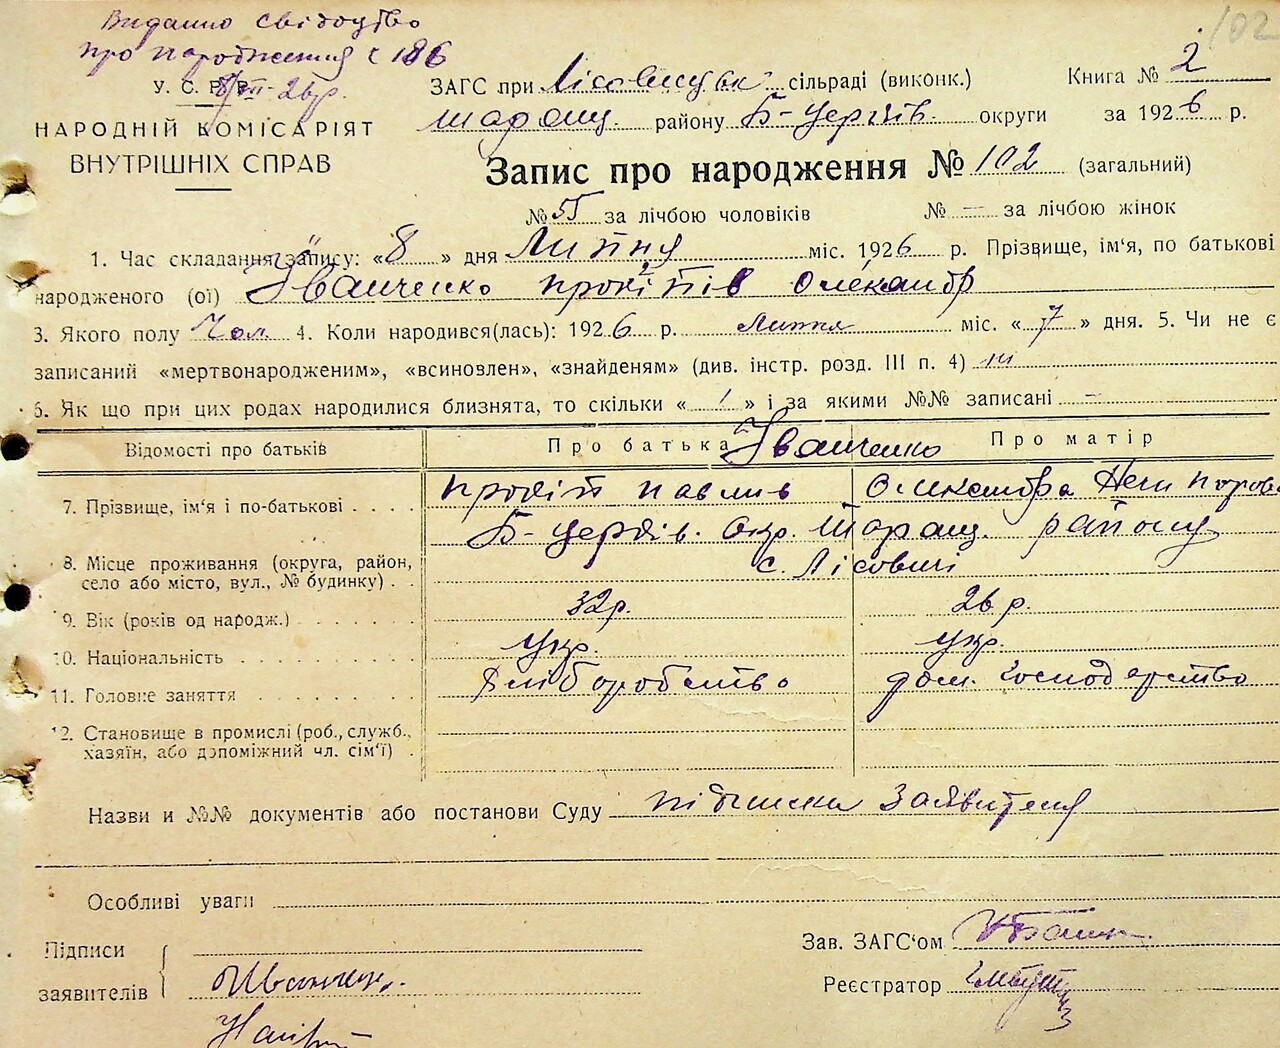 102
Видано свідоцтво
про народження № 186
8/VII-26р.
У. С. Р. Р.
НАРОДНІЙ КОМІСАРІЯТ
ВНУТРІШНІХ СПРАВ
ЗАГС при Лісовицьк сільраді (виконк.) Книга № 2
Таращ. району Б-Церків. округи за 1926 р.
Запис про народження № 102 (загальний)
№ 55 за лічбою чоловіків № — за лічбою жінок
1. Час складання запису: «8» дня Липня міс. 1926 р. Прізвище, ім'я, по батькові
народженого (ої) Іванченко Прокіпів Олександр
3. Якого полу Чол. 4. Коли народився(лась): 1926 р. Липня міс. «7» дня. 5. Чи не є
записаний «мертвонародженим», «всиновлен», «знайденям» (див. інстр. розд. III п. 4) ні
6. Як що при цих родах народилися близнята, то скільки «1» і за якими №№ записані —
Відомості про батьків Про батька Про матір
Іванченко
7. Прізвище, ім'я і по-батькові Прокіп Павлів Олександра Нечипорова
Б-Церків. Окр. Таращ. району
8. Місце проживання (округа, район,
село або місто, вул., № будинку) с. Лісовичі
9. Вік (років од народж.) 32р. 26 р.
10. Національність Укр. Укр.
11. Головне заняття Хліборобство дом. господарство
12. Становище в промислі (роб., служб.,
хазяїн, або допоміжний чл. сім'ї)
Назви и №№ документів або постанови Суду підписка заявителя
Особливі уваги
Підписи
заявителів Іванчен.
Зав. ЗАГС'ом
Реєстратор